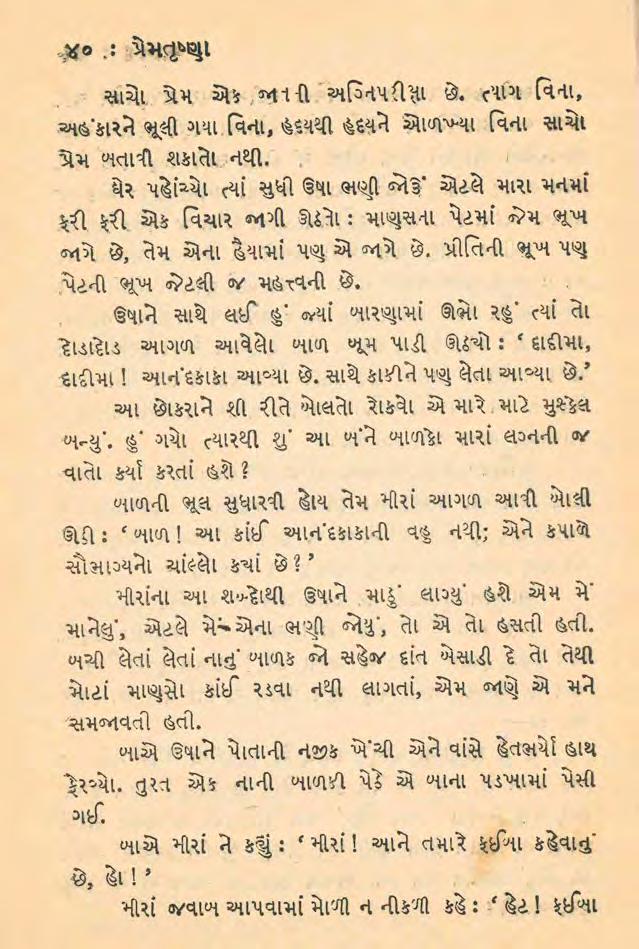 ૪૦ : પ્રેમતૃષ્ણા
સાચો પ્રેમ એક જાતની અગ્નિપરીક્ષા છે. ત્યાગ વિના,
અહંકારને ભૂલી ગયા વિના, હૃદયથી હૃદયને ઓળખ્યા વિના સાચો
પ્રેમ બતાવી શકાતો નથી.
ઘેર પહોંચ્યો ત્યાં સુધી ઉષા ભણી જોઉં એટલે મારા મનમાં
ફરી ફરી એક વિચાર જાગી ઊઠતો : માણસના પેટમાં જેમ ભૂખ
જાગે છે, તેમ એના હૈયામાં પણ એ જાગે છે. પ્રીતિની ભૂખ પણ
પેટની ભૂખ જેટલી જ મહત્ત્વની છે.
ઉષાને સાથે લઈ હું જ્યાં બારણામાં ઊભો રહું ત્યાં તો
દોડાદોડ આગળ આવેલો બાળ બૂમ પાડી ઊઠ્યો : ‘ દાદીમા,
દાદીમા ! આનંદકાકા આવ્યા છે. સાથે કાકીને પણ લેતા આવ્યા છે.’
આ છોકરાને શી રીતે બોલતો રોકવો એ મારે માટે મુશ્કેલ
બન્યું. હું ગયો ત્યારથી શું આ બંને બાળકો મારાં લગ્નની જ
વાતો કર્યા કરતાં હશે ?
બાળની ભૂલ સુધારવી હોય તેમ મીરાં આગળ આવી બોલી
ઊઠી : ‘ બાળ ! આ કાંઈ આનંદકાકાની વહુ નથી; એને કપાળે
સૌભાગ્યનો ચાંલ્લો ક્યાં છે ? ’
મીરાંના આ શબ્દોથી ઉષાને માઠું લાગ્યું હશે એમ મેં
માનેલું, એટલે મેં એના ભણી જોયું, તો એ તો હસતી હતી.
બચી લેતાં લેતાં નાનું બાળક જો સહેજ દાંત બેસાડી દે તો તેથી
મોટાં માણસો કાંઈ રડવા નથી લાગતાં, એમ જાણે એ મને
સમજાવતી હતી.
બાએ ઉષાને પોતાની નજીક ખેંચી એને વાંસે હેતભર્યો હાથ
ફેરવ્યો. તુરત એક નાની બાળકી પેઠે એ બાના પડખામાં પેસી
ગઈ.
બાએ મીરાં ને કહ્યું : ‘ મીરાં ! આને તમારે ફઈબા કહેવાનું
છે, હો ! ’
મીરાં જવાબ આપવામાં મોળી ન નીકળી કહે : ‘ હેટ ! ફઈબા